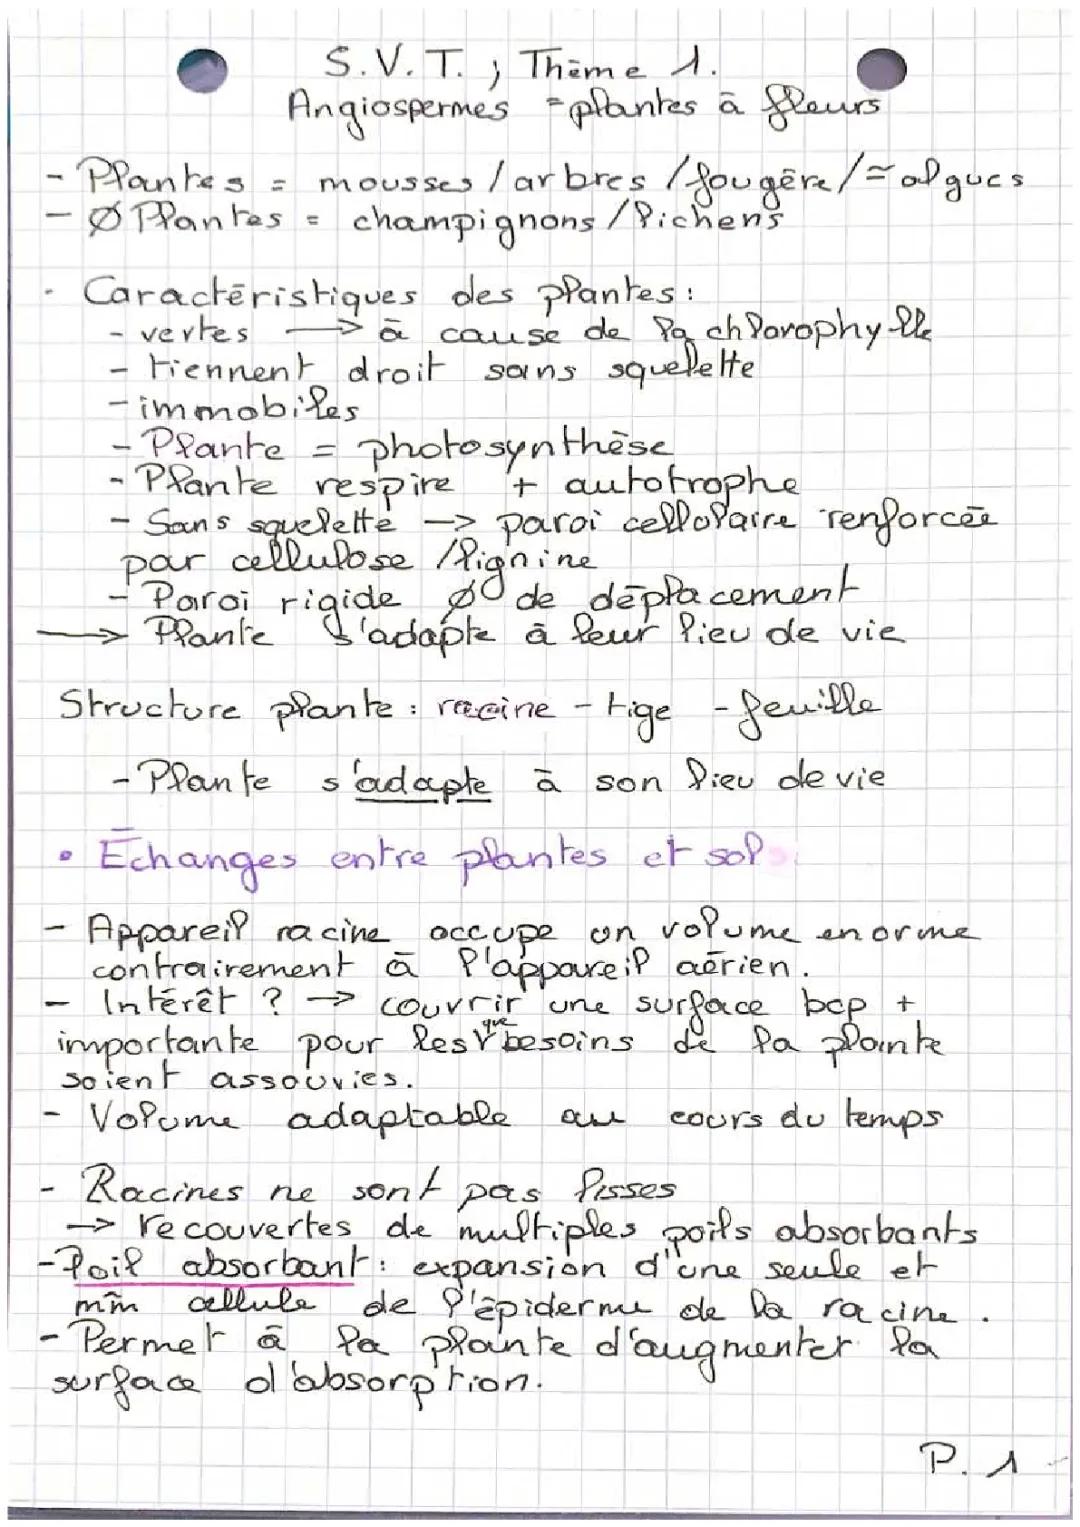 S.V.T. ; Thème 1.
Angiospermes = plantes à fleurs
- Plantes = mousses / arbres / fougère / ≃ algues
- Ø Plantes = champignons / lichens
· Caractéristiques des plantes :
- vertes → à cause de la chlorophylle
- tiennent droit sans squelette
- immobiles
- Plante = photosynthèse
- Plante respire + autotrophe
- Sans squelette → paroi cellulaire renforcée
par cellulose / lignine
- Paroi rigide Ø de déplacement
→ Plante s'adapte à leur lieu de vie
Structure plante : racine - tige - feuille
- Plante s'adapte à son lieu de vie
• Échanges entre plantes et sol
- Appareil racine occupe un volume enorme
contrairement à l'appareil aérien.
- Intérêt ? → couvrir une surface bcp +
importante pour les que besoins de la plante
soient assouvies.
- Volume adaptable au cours du temps
- Racines ne sont pas lisses
→ recouvertes de multiples poils absorbants
- Poil absorbant : expansion d'une seule et
mm cellule de l'épiderme de la racine.
- Permet à la plante d'augmenter la
surface d'absorption.
P. 1